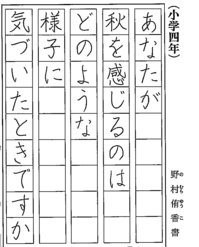 (小学四年)
野村侑香書
あなたが
秋を感じるのは
どのような
様子に
気づいたときですか